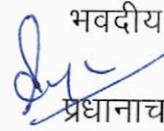 भवदीय
प्रधानाच